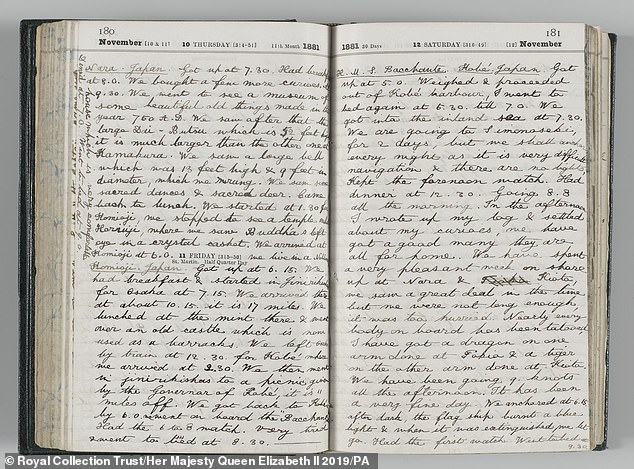 180
November [10 & 11] 10 THURSDAY [314-51] 11th Month 1881
Nara. Japan. Got up at 7.30. Had
at 8.0. We bought a few more curios.
9.30. We went to see a museum of
some beautiful old things made in the
year 750 A.D. We saw after that the
large Dai-Butsu which is 53 feet
it is much larger than the other one
Kamakura. We saw a large bell
which was 13 feet high & 9 feet in
diameter, which we rung. We saw some
sacred dances & sacred deer. Came
back to lunch. We started at 1.30 for
we stopped to see a temple
where we saw Buddha's left
eye in a crystal casket. We arrived at
at 6.0. we live in a
11 FRIDAY [315-50]
St. Martin. Half Quarter Day
Japan. Got up at 6.15. We
had breakfast & started in jinrikishas
for Osaka at 7.15. We arrived there
at about 10.15. It is 17 miles. We
lunched at the mint there & went
over an old castle which is now
used as a barracks. We left
by train at 12.30 for Kobé where
we arrived at 2.30. We then went
in jinrikishas to a picnic given
by the Governor of Kobé it is 11
miles off. We got back to Kobé
by 6.0 & went on board the Bacchante
Had the 6 to 8 watch. Very tired
& went to bed at 8.30.
1881 30 Days 12 SATURDAY [316-49] [12] November
181
H.M.S. Bacchante. Kobé. Japan. Got
up at 5.0. Weighed & proceeded
out of Kobé harbour, I went to
bed again at 5.30. till 7.0. We
got into the inland sea at 7.30.
We are going to Simonoseki,
for 2 days, but we shall anchor
every night as it is very difficult
navigation & there are no lights.
Kept the forenoon watch. Had
dinner at 12.30. Going 8.8
all the morning. In the afternoon
I wrote up my log & settled
about my curios, we have
got a good many they are
all for home. We have spent
a very pleasant week on shore
up at Nara & Kioto
we saw a great deal in the time
but we were not long enough
it was too hurried. Nearly every
body on board has been tatooed
I have got a dragon on one
arm done at Tokio & a tiger
on the other arm done at Kioto
We have been going 9 knots
all the afternoon. It has been
a very fine day. We anchored at 6.15
after dark, the flag ship burnt a blue
light & when it was extinguished we let
go. Had the first watch. Went to bed at
9.30
© Royal Collection Trust/Her Majesty Queen Elizabeth II 2019/PA